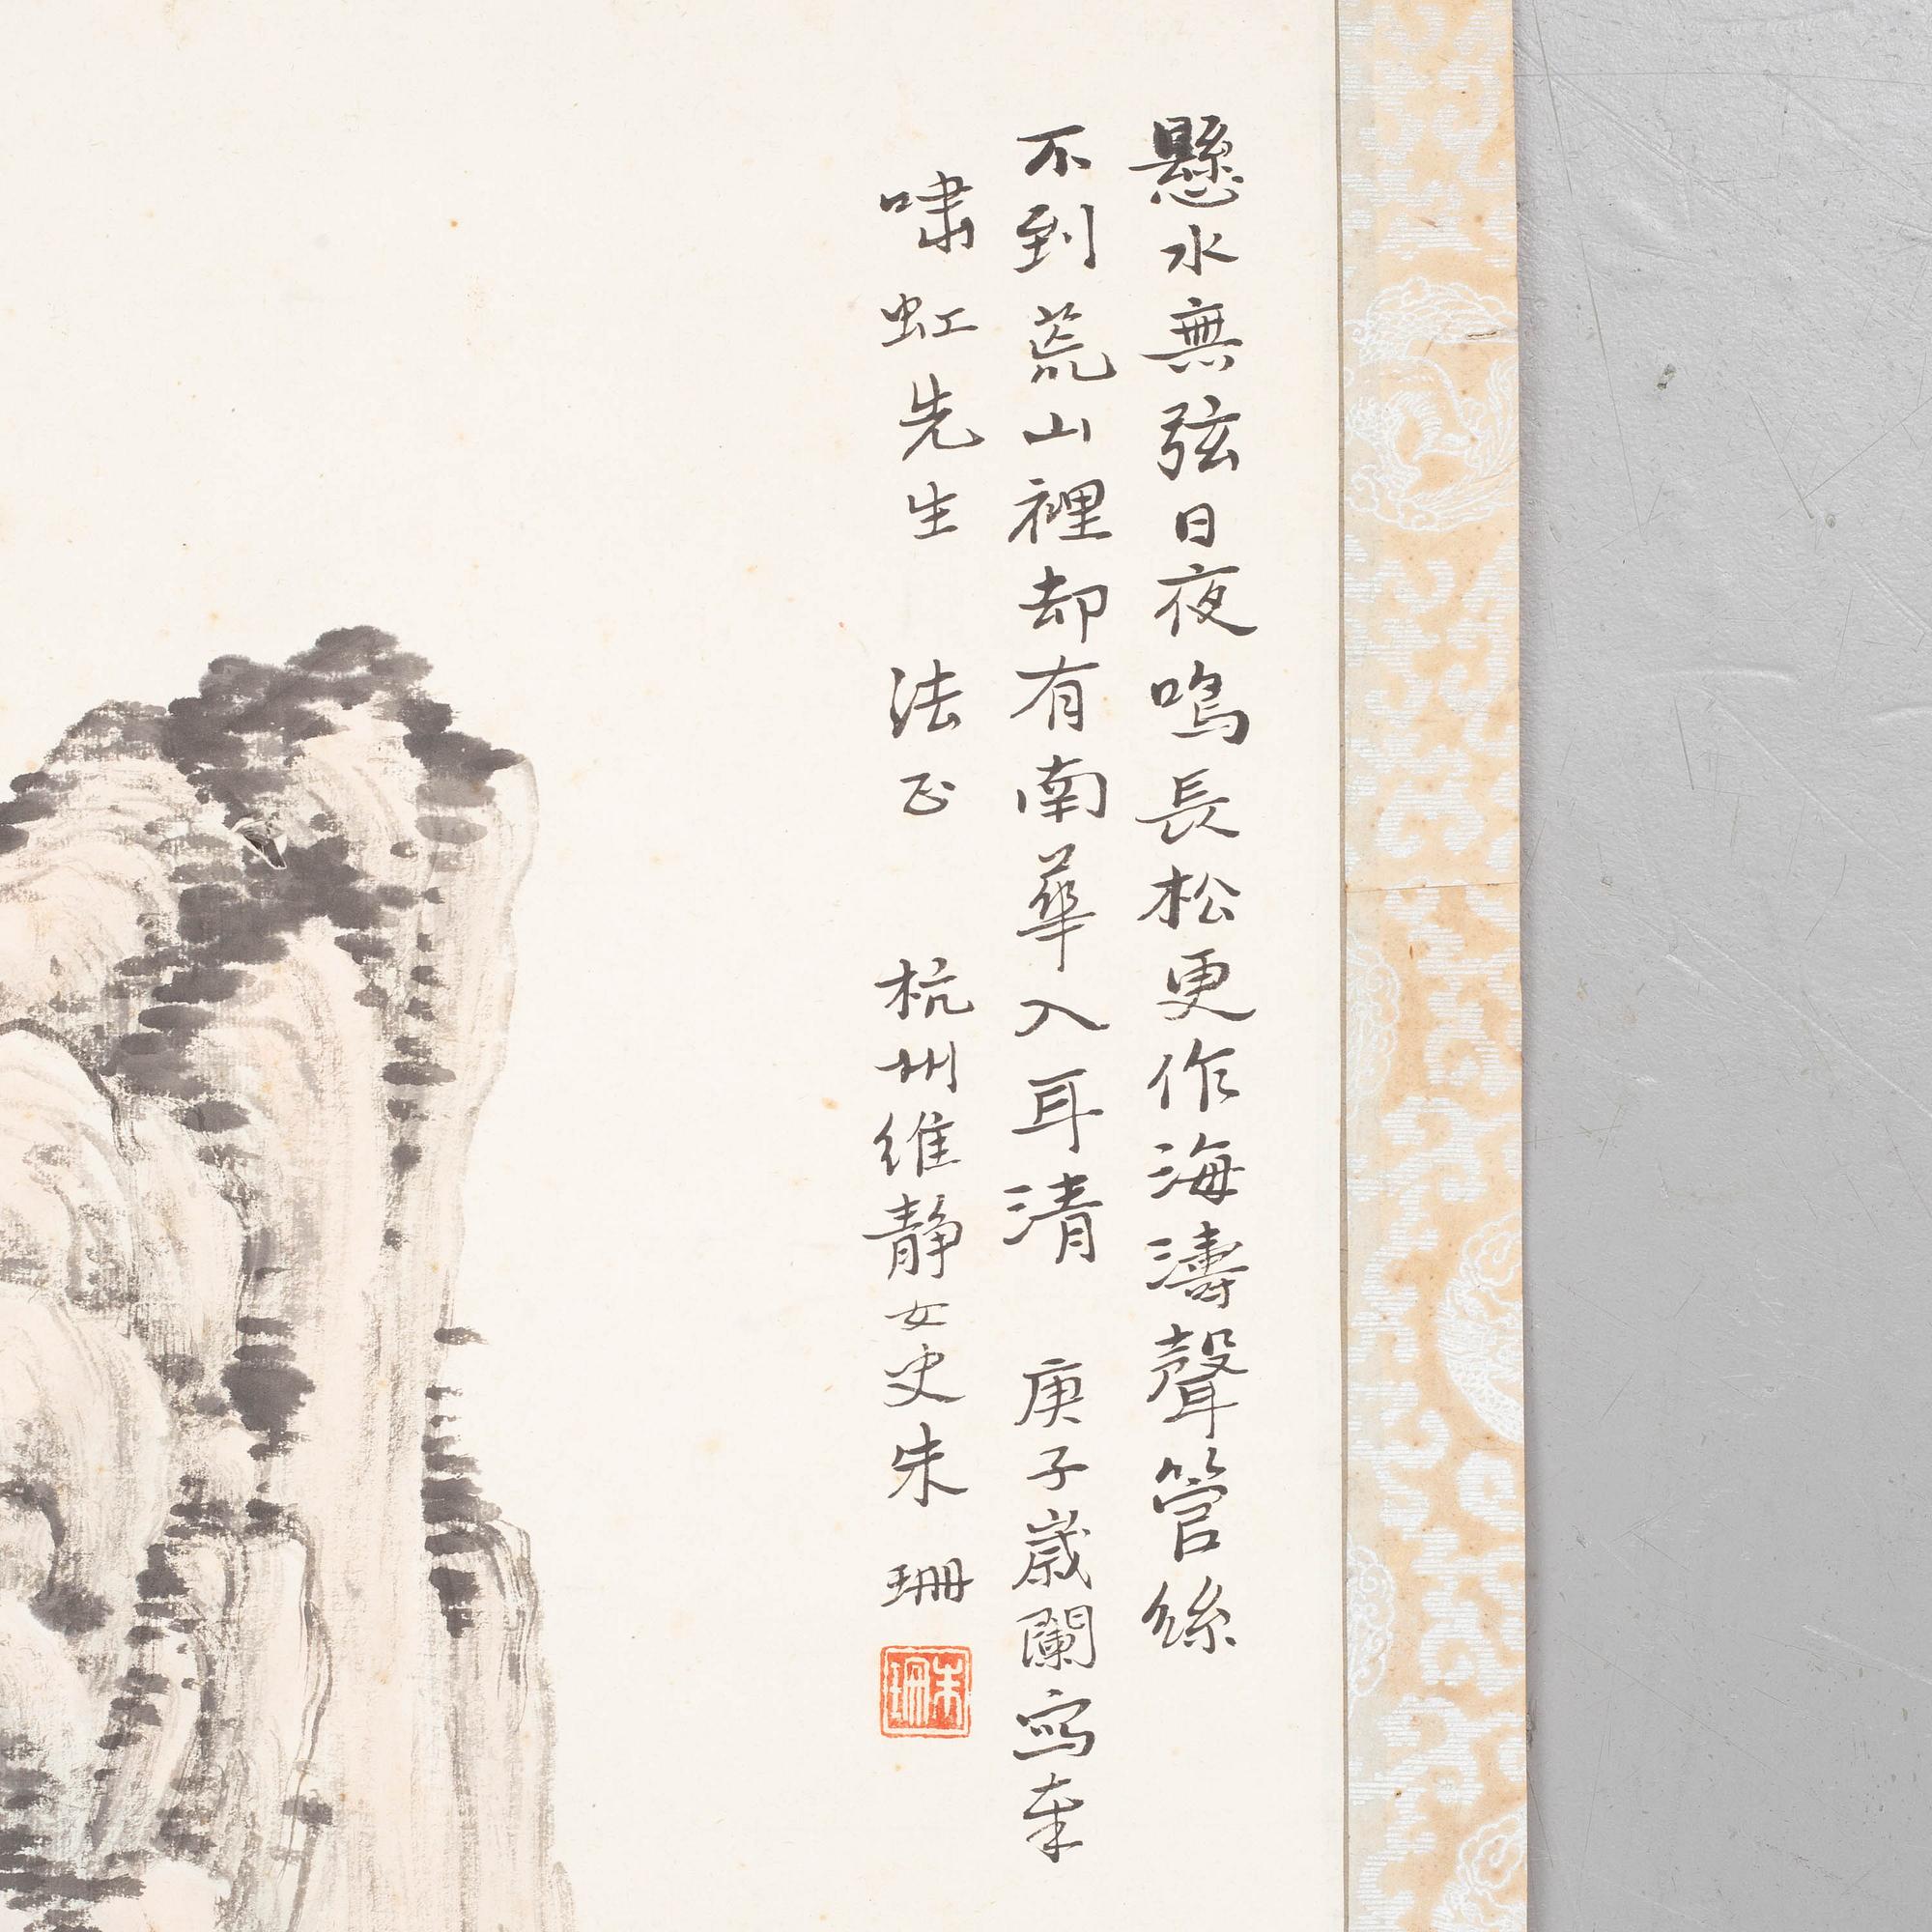 懸水無弦日夜鳴長松更作海濤聲管絲
不到荒山裡却有南華入耳清 庚子歲闌寫奉
嘯虹先生 法正 杭州維静女史朱珊
朱珊